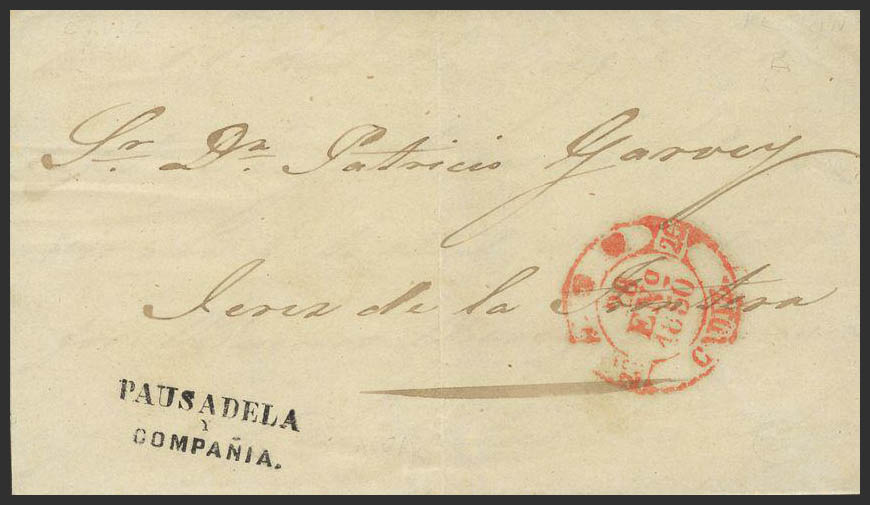 Sr. Dn. Patricio Garvey
Jerez de la Frontera
28
ENº
1850
CADIZ
PAUSADELA
Y
COMPAÑIA.